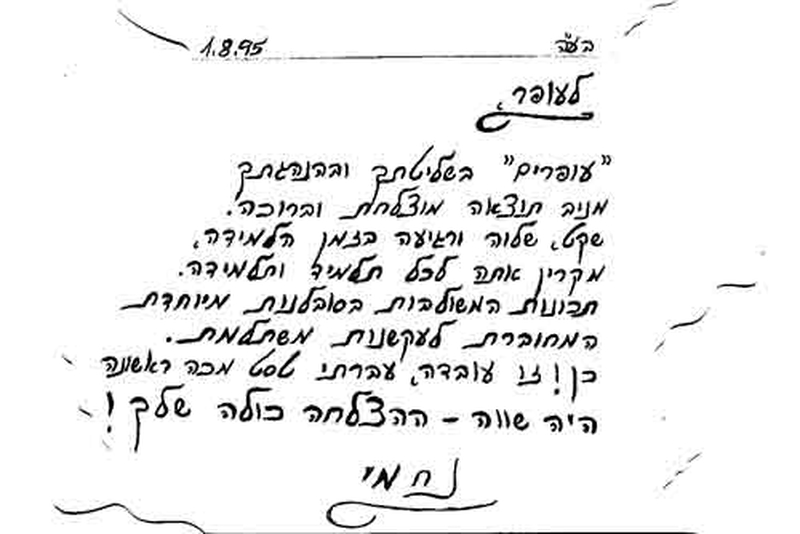 בע"ה 1.8.95
לעופר,
"עופרים" בשליטתך ובהנהגתך
מניב תוצאה מוצלחת וברוכה.
שקט, שלוה ורגיעה בזמן הלמידה,
מקרין אתה לכל תלמיד ותלמידה.
תכונות המשולבות בסובלנות מיוחדת
המחוברת לעקשנות משתלמת.
כן! זו עובדה, עברתי טסט מכה ראשונה
היה שווה - ההצלחה כולה שלך!
נחמי